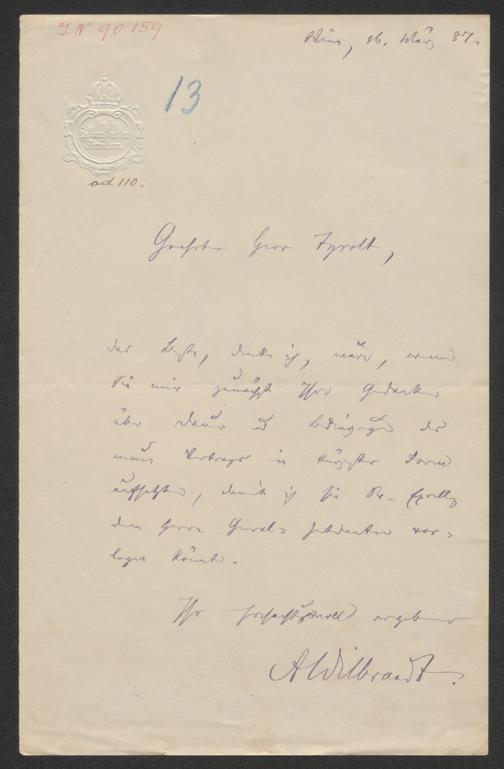 J.N. 90 159
Wien, 16. März 87.
13
ad 110.
Geehrter Herr Tyrolt,
das Beste, denke ich, wäre, wenn
Sie mir zunächst Ihre Gedanken
über Dauer und Bedingungen des
neuen Vertrags in kürzester Form
aufsetzten, damit ich sie Sr. Excellenz
dem Herrn General-Intendanten vor-
legen könnte.
Ihr hochachtungsvoll ergebener
AWilbrandt.